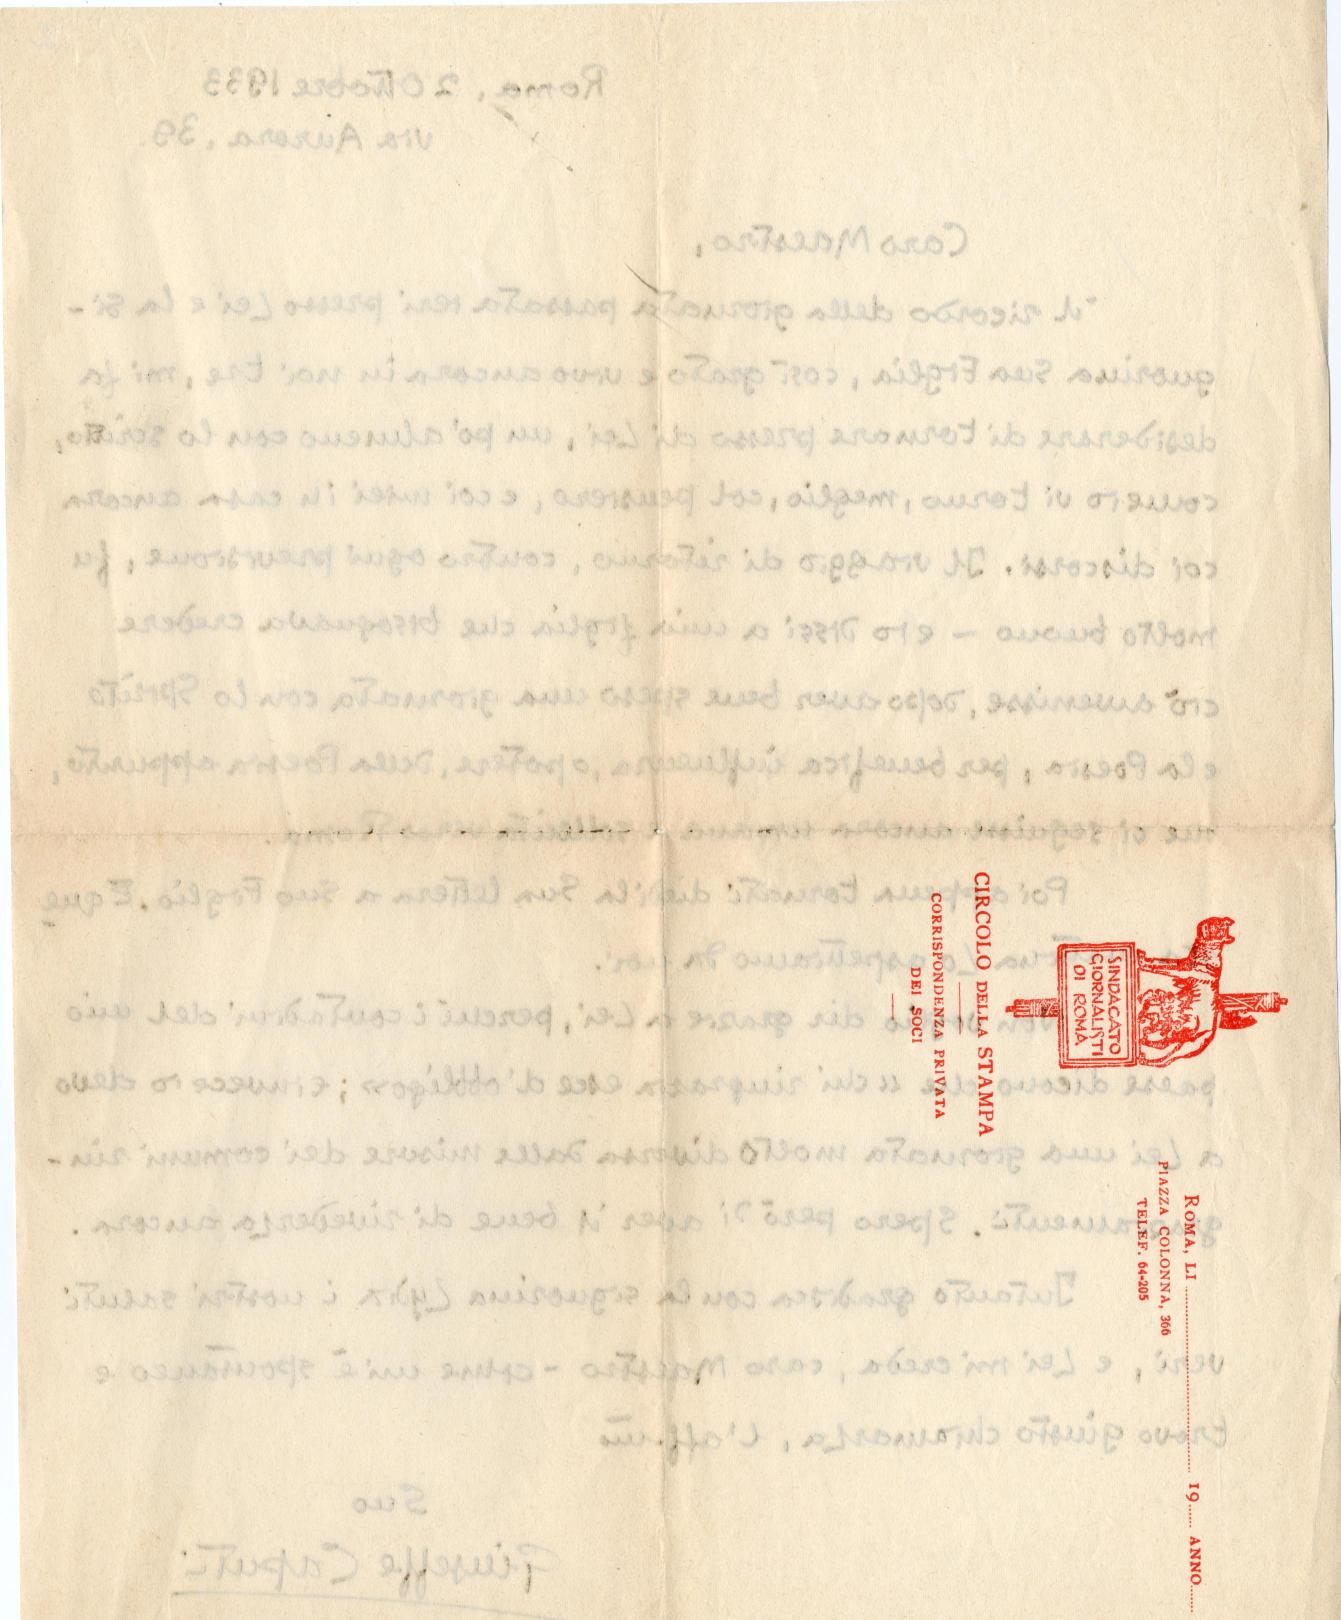 SINDACATO
GIORNALISTI
DI ROMA
CIRCOLO DELLA STAMPA
CORRISPONDENZA PRIVATA
DEI SOCI
ROMA, LI ........ 19..... ANNO......
PIAZZA COLONNA, 366
TELEF. 64-205
Roma, 2 Ottobre 1933
via Aurora, 39.
Caro Maestro,
il ricordo della giornata passata ieri presso Lei e la Si-
gnorina Sua Figlia, così grato e vivo ancora in noi tre, mi fa
desiderare di tornare presso di Lei, un po' almeno con lo scritto,
come io vi torno, meglio, col pensiero, e coi miei in casa ancora
coi discorsi. Il viaggio di ritorno, contro ogni previsione, fu
molto buono – e io dissi a mia figlia che bisognava credere
ciò avvenisse, dopo aver bene speso una giornata con lo Spirito
e la Poesia, per benefica influenza, o potere, della Poesia appunto,
ne ci seguisse ancora verso Roma.
Poi appena tornati diedi la Sua lettera a Suo Foglio. E que
La aspettiamo da noi.
Non dir grazie a Lei, perchè i contadini del mio
paese dicono che « chi ringrazia esce d'obbligo »; e invece io devo
a Lei una giornata molto diversa dalle misure dei comuni rin-
graziamenti. Spero però di aver il bene di rivederLa ancora.
Intanto gradisca con la signorina Lydia i nostri saluti
veri, e Lei mi creda, caro Maestro – come mi è spontaneo e
trovo giusto chiamarLa, l'aff.mo
Suo
Giuseppe Caputi